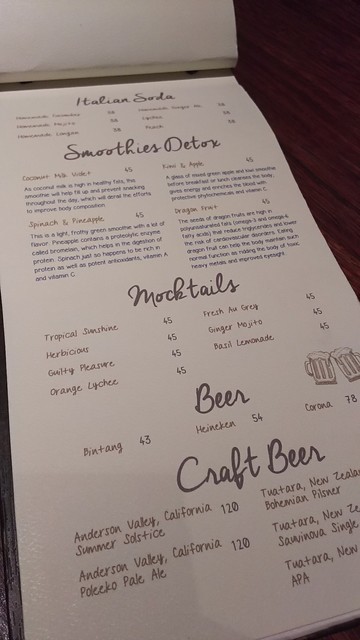 Italian Soda
38
38
38
38
Lychee 38
Punch 38
Smoothies Detox
Coconut Milk Violet 45
As coconut milk is high in healthy fats, this
smoothie will help fill up and prevent snacking
throughout the day, which will denial the efforts
to improve body composition
Spinach & Pineapple 45
This is a light, frothy green smoothie with a lot of
flavor. Pineapple contains a proteolytic enzyme
called bromelain, which helps in the digestion of
protein. Spinach just so happens to be rich in
protein as well as potent antioxidants, vitamin A
and vitamin C.
Kiwi & Apple 45
A glass of mixed green apple and kiwi smoothie
before breakfast or lunch cleanses the body,
gives energy and enriches the blood with
protective phytochemicals and vitamin C.
Dragon Fruit 45
The seeds of dragon fruits are high in
polyunsaturated fats (omega-3 and omega-6
fatty acids) that reduce triglycerides and lower
the risk of cardiovascular disorders. Eating
dragon fruit can help the body maintain such
normal function as ridding the body of toxic
heavy metals and improved eyesight.
Mocktails
Tropical Sunshine 45
Herbicious 45
Guilty Pleasure 45
Orange Lychee 45
Fresh Au Grey 45
Ginger Mojito 45
Basil Lemonade 45
Beer
Bintang 43
Heineken 54
Corona 78
Craft Beer
Anderson Valley, California 120
Summer Solstice
Anderson Valley, California 120
Poleeko Pale Ale
Tuatara, New Zeala
Bohemian Pilsner
Tuatara, New Ze
Sauvinova Single
Tuatara, New
APA